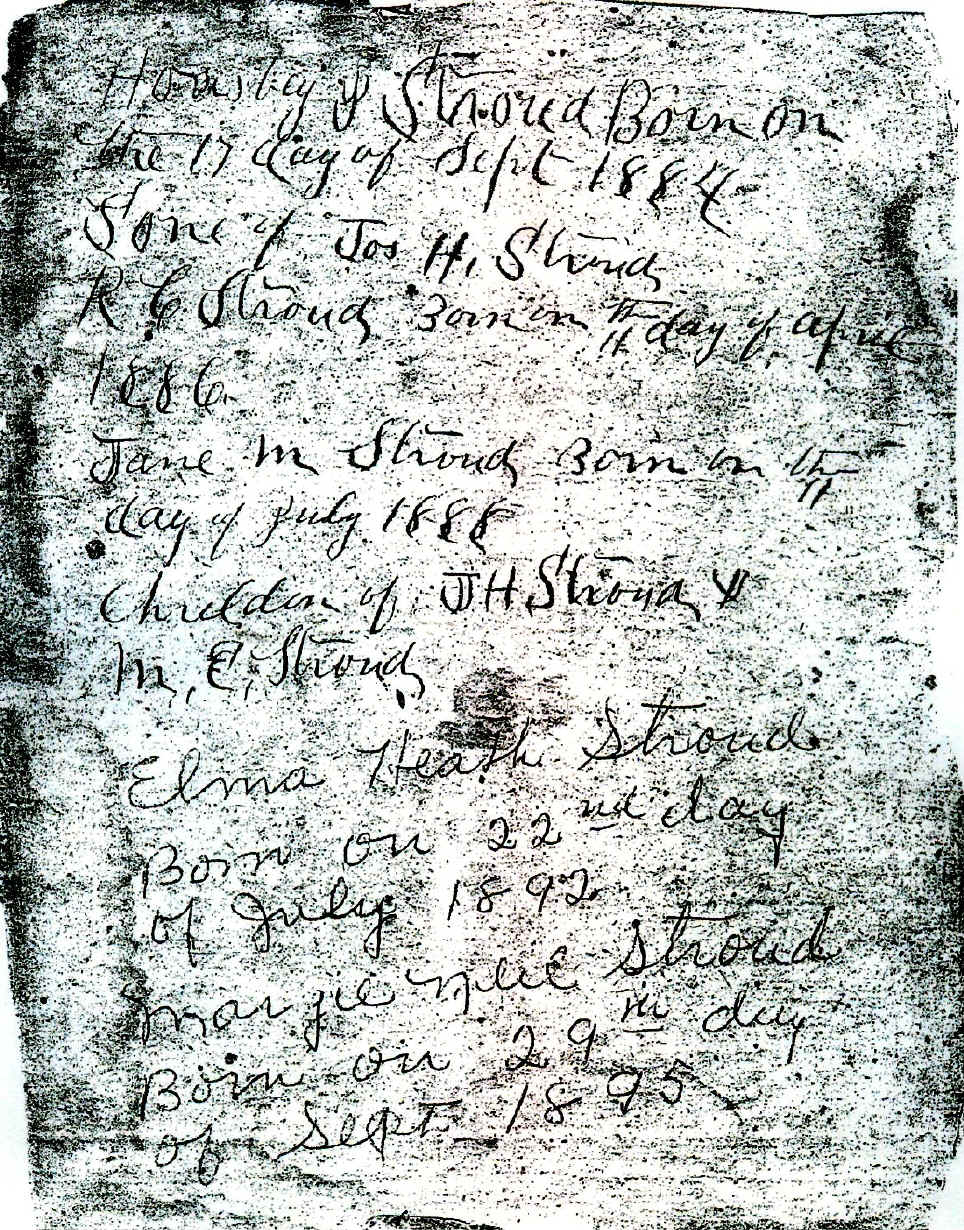 Hornsby J Stroud Born on
the 17 day of Sept 1884
Sone of Jos H. Stroud
R C Stroud Born on th 11 day of april
1886.
Jane M Stroud Born on th 11
day of July 1888
Chrildon of J H Stroud &
M. E. Stroud
Elma Heath Stroud
Born on 22nd day
of July 1892
Marjie Nell Stroud
Born on 29th day
of Sept 1895